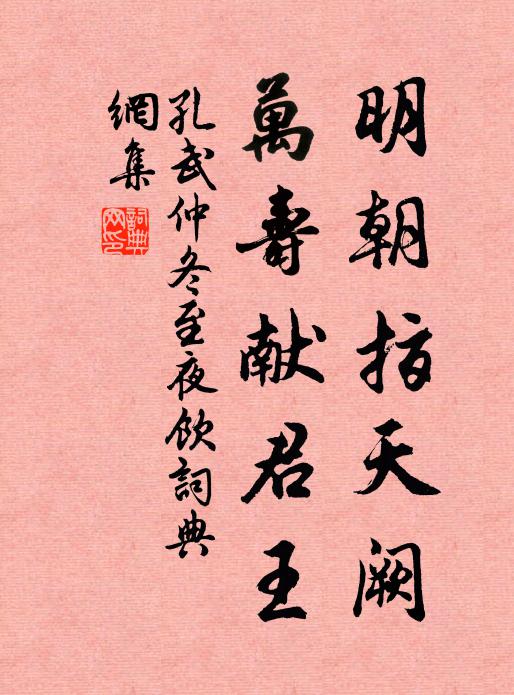 明朝指天阙
萬壽献君王
孔武仲冬至夜飲詞典
網集
詞典
网印